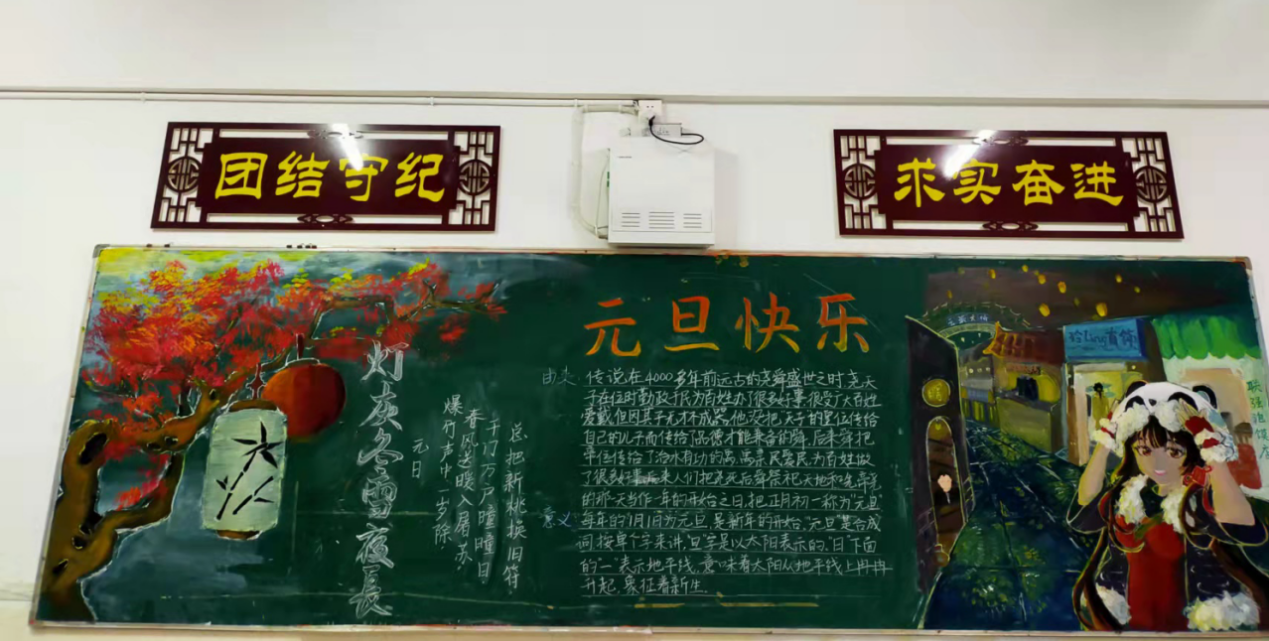 团结守纪
求实奋进
灯灰冬雪夜长
元日
爆竹声中一岁除
春风送暖入屠苏
千门万户瞳瞳日
总把新桃换旧符
元旦快乐
由来:传说在4000多年前远古的尧舜盛世之时尧天
子在位时勤政于民为百姓办了很多好事很受广大百姓
爱戴但因其子无才不成器他没把"天子"的皇位传给
自己的儿子而传给了品德才能兼备的舜,后来舜把
帝位传给了治水有功的禹,禹亲民爱民,为百姓做
了很多好事后来人们把尧死后舜祭祀天地和先帝尧
的那一天当作一年的开始之日,把正月初一称为"元旦"
意义:每年的1月1日为元旦,是新年的开始,"元旦"是合成
词按单个字来讲,"旦"字是以太阳表示的,"日"下面
的"一"表示地平线,意味着太阳从地平线上冉冉
升起,象征着新生.